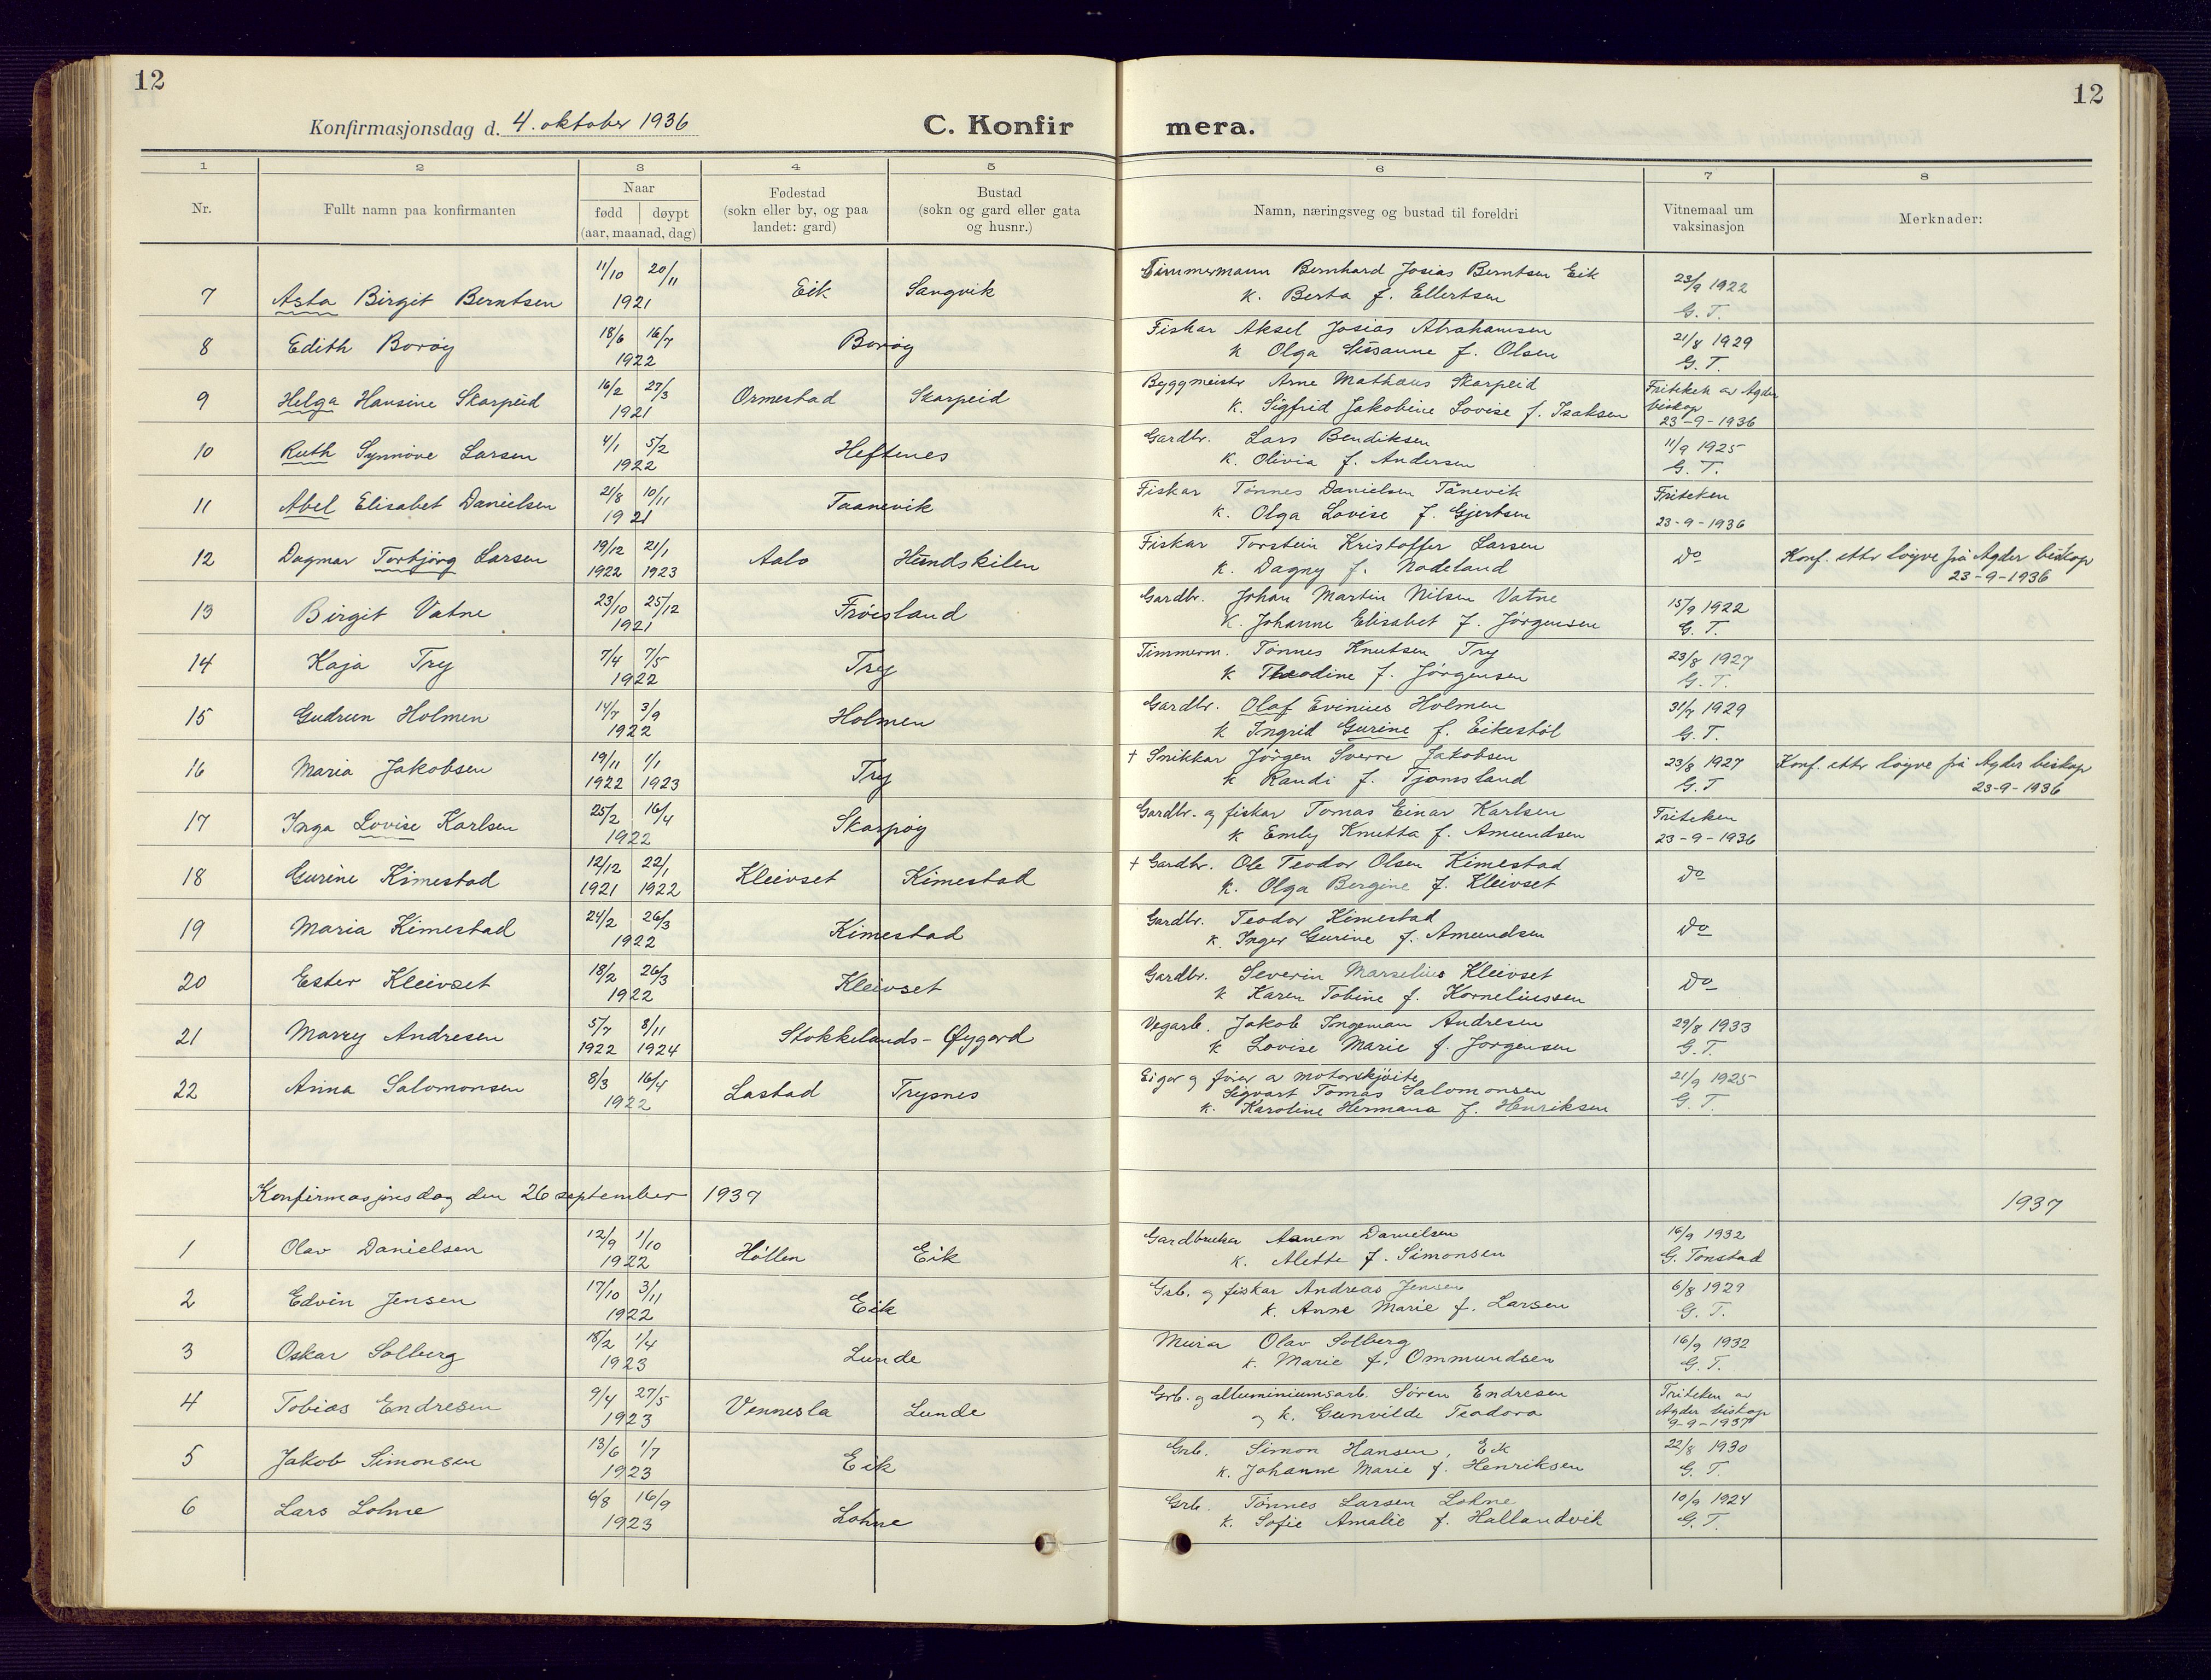 12
12
Konfirmasjonsdag d. 4. oktober 1936
C. Konfir mera.
1 2 3 4 5 6 7 8
Nr.
Fullt namn paa konfirmanten
Naar
fødd døypt
(aar, maanad, dag)
Fødestad
(sokn eller by, og paa
landet: gard)
Bustad
(sokn og gard eller gata
og husnr.)
Namn, næringsveg og bustad til foreldri
Vitnemaal um
vaksinasjon
Merknader:
7 Asta Birgit Berntsen 11/10 20/11 1921 Eik Sangvik Timmermann Bernhard Josias Berntsen Eik 23/9 1922
k. Berta f. Ellertsen G. T.
8 Edith Borøy 18/6 16/7 1922 Borøy Fiskar Aksel Josias Abrahamsen 21/8 1929
k Olga Susanne f. Olsen G. T.
9 Helga Hansine Skarpeid 16/2 27/3 1921 Ormestad Skarpeid Byggmeistr Arne Mathæus Skarpeid Friteken av Agder
k. Sigfrid Jakobine Lovise f. Isaksen biskop
23-9-1936
10 Ruth Synnøve Larsen 4/1 5/2 1922 Heftenes Gardbr. Lars Bendiksen 11/9 1925
k. Olivia f. Andersen G. T.
11 Abel Elisabet Danielsen 21/8 10/11 1921 Taanevik Fiskar Tønnes Danielsen Tånevik Friteken
k. Olga Lovise f. Gjertsen 23-9-1936
12 Dagmar Torbjørg Larsen 19/12 21/1 1922 1923 Aalo Hundskilen Fiskar Torstein Kristoffer Larsen Do Konf. etter løyve frå Agder biskop
k. Dagny f. Nodeland 23-9-1936
13 Birgit Vatne 23/10 25/12 1921 Frøisland Gardbr. Johan Martin Nilsen Vatne 15/9 1922
k. Johanne Elisabet f. Jørgensen G. T.
14 Kaja Try 7/4 7/5 1922 Try Timmerm. Tønnes Knutsen Try 23/8 1927
k Theodine f. Jørgensen G. T.
15 Gudrun Holmen 14/7 3/9 1922 Holmen Gardbr. Olaf Evinius Holmen 31/7 1929
k Ingrid Gurine f. Eikestøl G. T.
16 Maria Jakobsen 19/11 1/1 1922 1923 Try + Snikkar Jørgen Sverre Jakobsen 23/8 1927 Konf. etter løyve frå Agder biskop
k Randi f. Tjomsland G. T 23-9-1936
17 Inga Lovise Karlsen 25/2 16/4 1922 Skarpøy Gardbr. og fiskar Tomas Einar Karlsen Friteken
k Emly Knutta f. Amundsen 23-9-1936
18 Gurine Kimestad 12/12 22/1 1921 1922 Kleivset Kimestad + Gardbr. Ole Teodor Olsen Kimestad Do
k. Olga Bergine f. Kleivset
19 Maria Kimestad 24/2 26/3 1922 Kimestad Gardbr. Teodor Kimestad Do
k. Inger Gurine f. Amundsen
20 Ester Kleivset 18/2 26/3 1922 Kleivset Gardbr. Severin Marselius Kleivset Do
k Karen Tobine f. Korneliussen
21 Marry Andresen 5/7 8/11 1922 1924 Stokkelands-Øygard Vegarb. Jakob Ingeman Andresen 29/8 1933
k Lovise Marie f. Jørgensen G. T.
22 Anna Salomonsen 8/3 16/4 1922 Lastad Trysnes Eigar og førar a motorskjøite 21/9 1925
Sigvart Tomas Salomonsen G. T.
k. Karoline Hermana f. Henriksen
Konfirmasjonsdag den 26 september 1937 1937
1 Olav Danielsen 12/9 1/10 1922 Høllen Eik Gardbrukar Aanen Danielsen 16/9 1932
k. Alette f. Simonsen G. Tonstad
2 Edvin Jensen 17/10 3/11 1922 Eik Grb. og fiskar Andreas Jensen 6/8 1929
k. Anne Marie f. Larsen G. T.
3 Oskar Solberg 18/2 1/4 1923 Lunde Murar Olav Solberg 16/9 1932
k. Marie f. Ommundsen G. T.
4 Tobias Endresen 9/4 27/5 1923 Vennesla Lunde Grb. og alluminiumsarb. Søren Endresen Friteken av
og k. Gunvilde Teodora Agder biskop
9-9-1937
5 Jakob Simonsen 13/6 1/7 1923 Eik Grb. Simon Hansen, Eik 22/8 1930
k. Johanne Marie f. Henriksen G. T.
6 Lars Lohne 6/8 16/9 1923 Lohne Grb. Tønnes Larsen Lohne 10/9 1924
k. Sofie Amalie f. Hallandvik G. T.